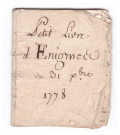 Petit Livre
d'Enigmes
du 31
1778